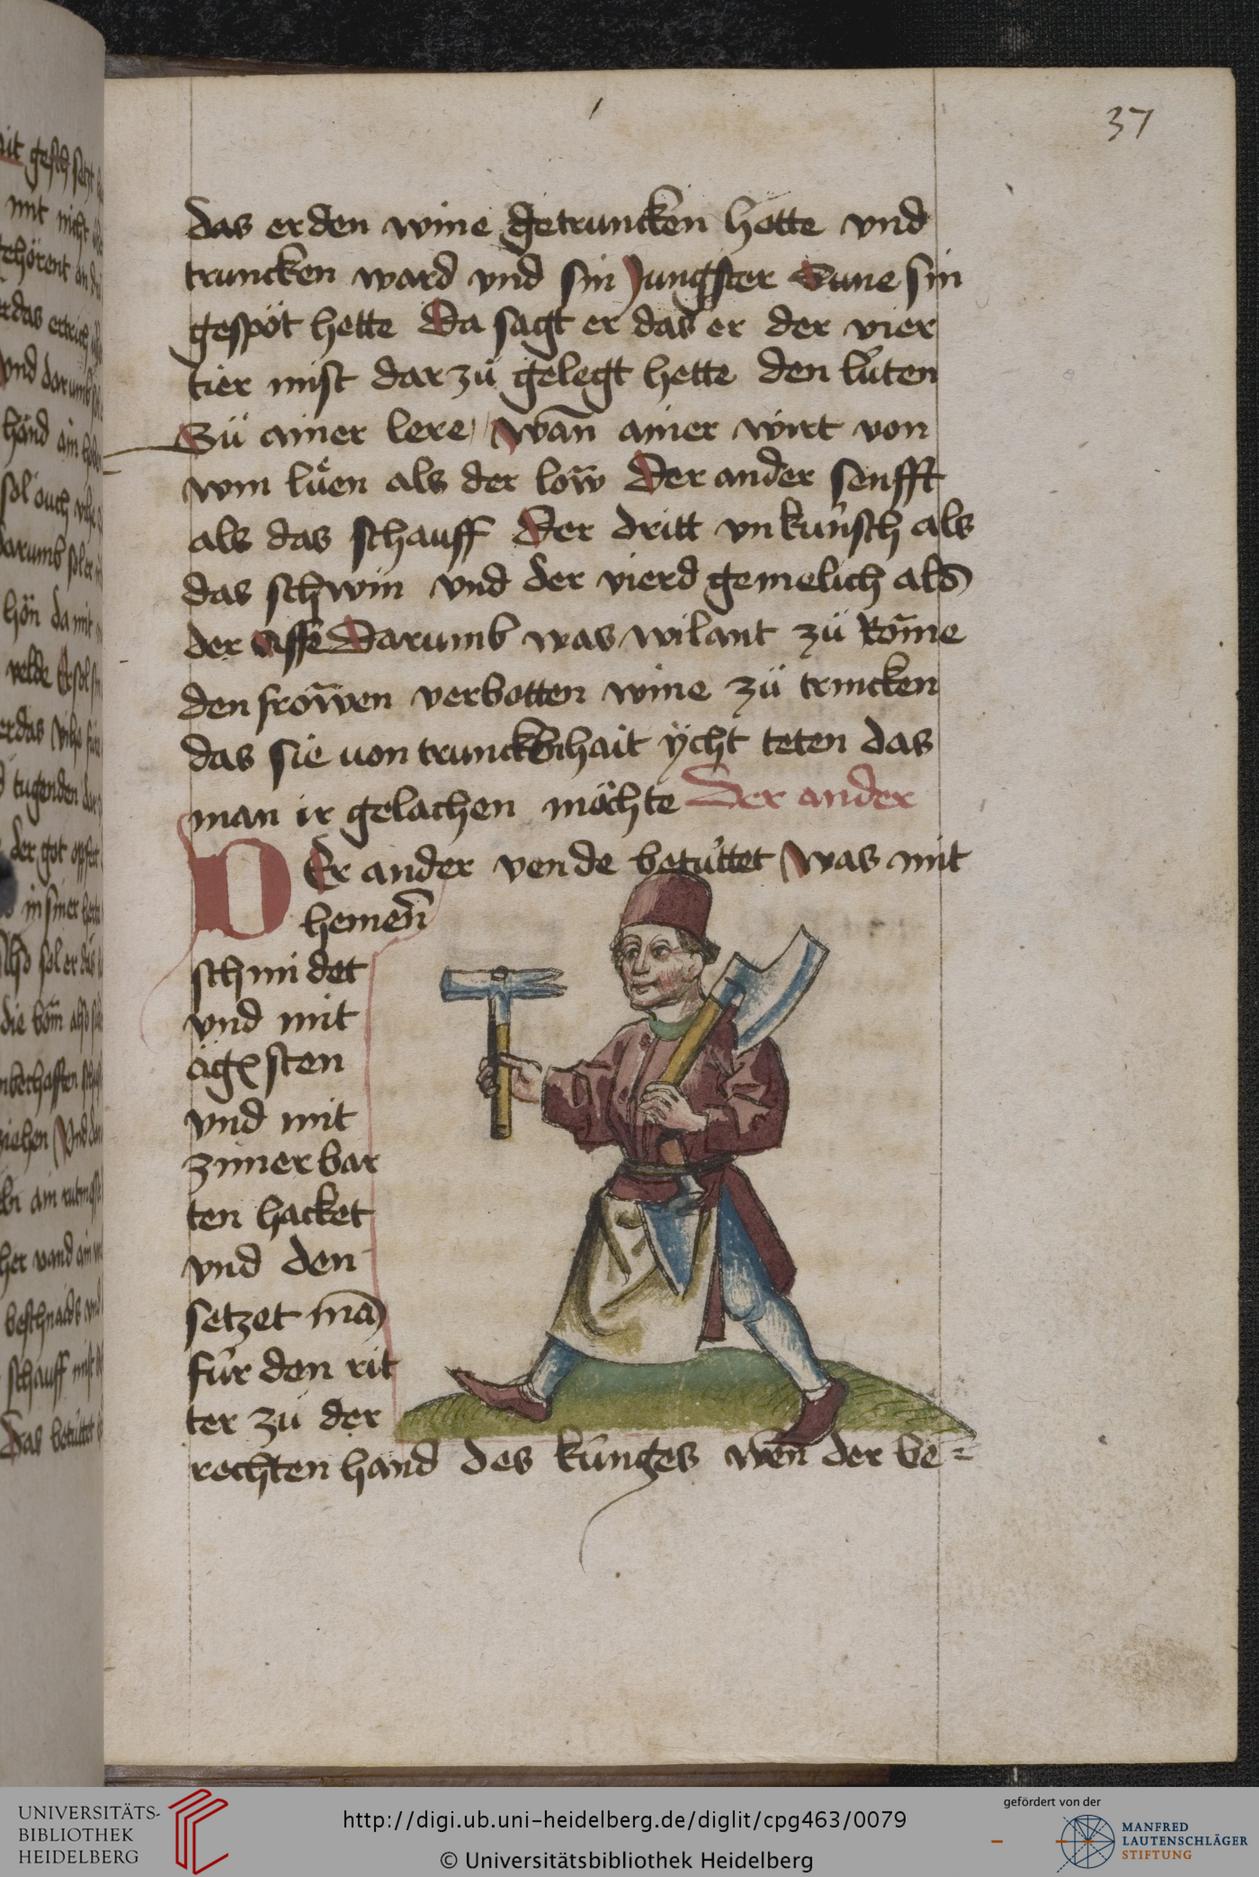 37
das er den wine getruncken hette vnd
truncken ward vnd sin Jungster Sune sin
gespöt hette Da sagt er das er der vier
tier mist dar zů gelegt hette den lüten
Zü ainer lere / wan̄ ainer wirt von
win lüen als der löw Der ander senfft
als das schauff Der dritt vnkünsch als
das schwin vnd der vierd gemelich als
der aff Darumb was wilant zü Rome
den frowen verbotten wine zü trincken
das sie von trunckenhait ÿcht teten das
man ir gelachen möchte Der ander
DEr ander vende betüttet was mit
hemen̄
schmidet
vnd mit
agxsten
vnd mit
zimerbar
ten hacket
vnd den
setzet mā
für den rit
ter zü der
rechten hand des künges wen̄ der be=
UNIVERSITÄTS-
BIBLIOTHEK
HEIDELBERG
http://digi.ub.uni-heidelberg.de/diglit/cpg463/0079
© Universitätsbibliothek Heidelberg
gefördert von der
MANFRED
LAUTENSCHLÄGER
STIFTUNG